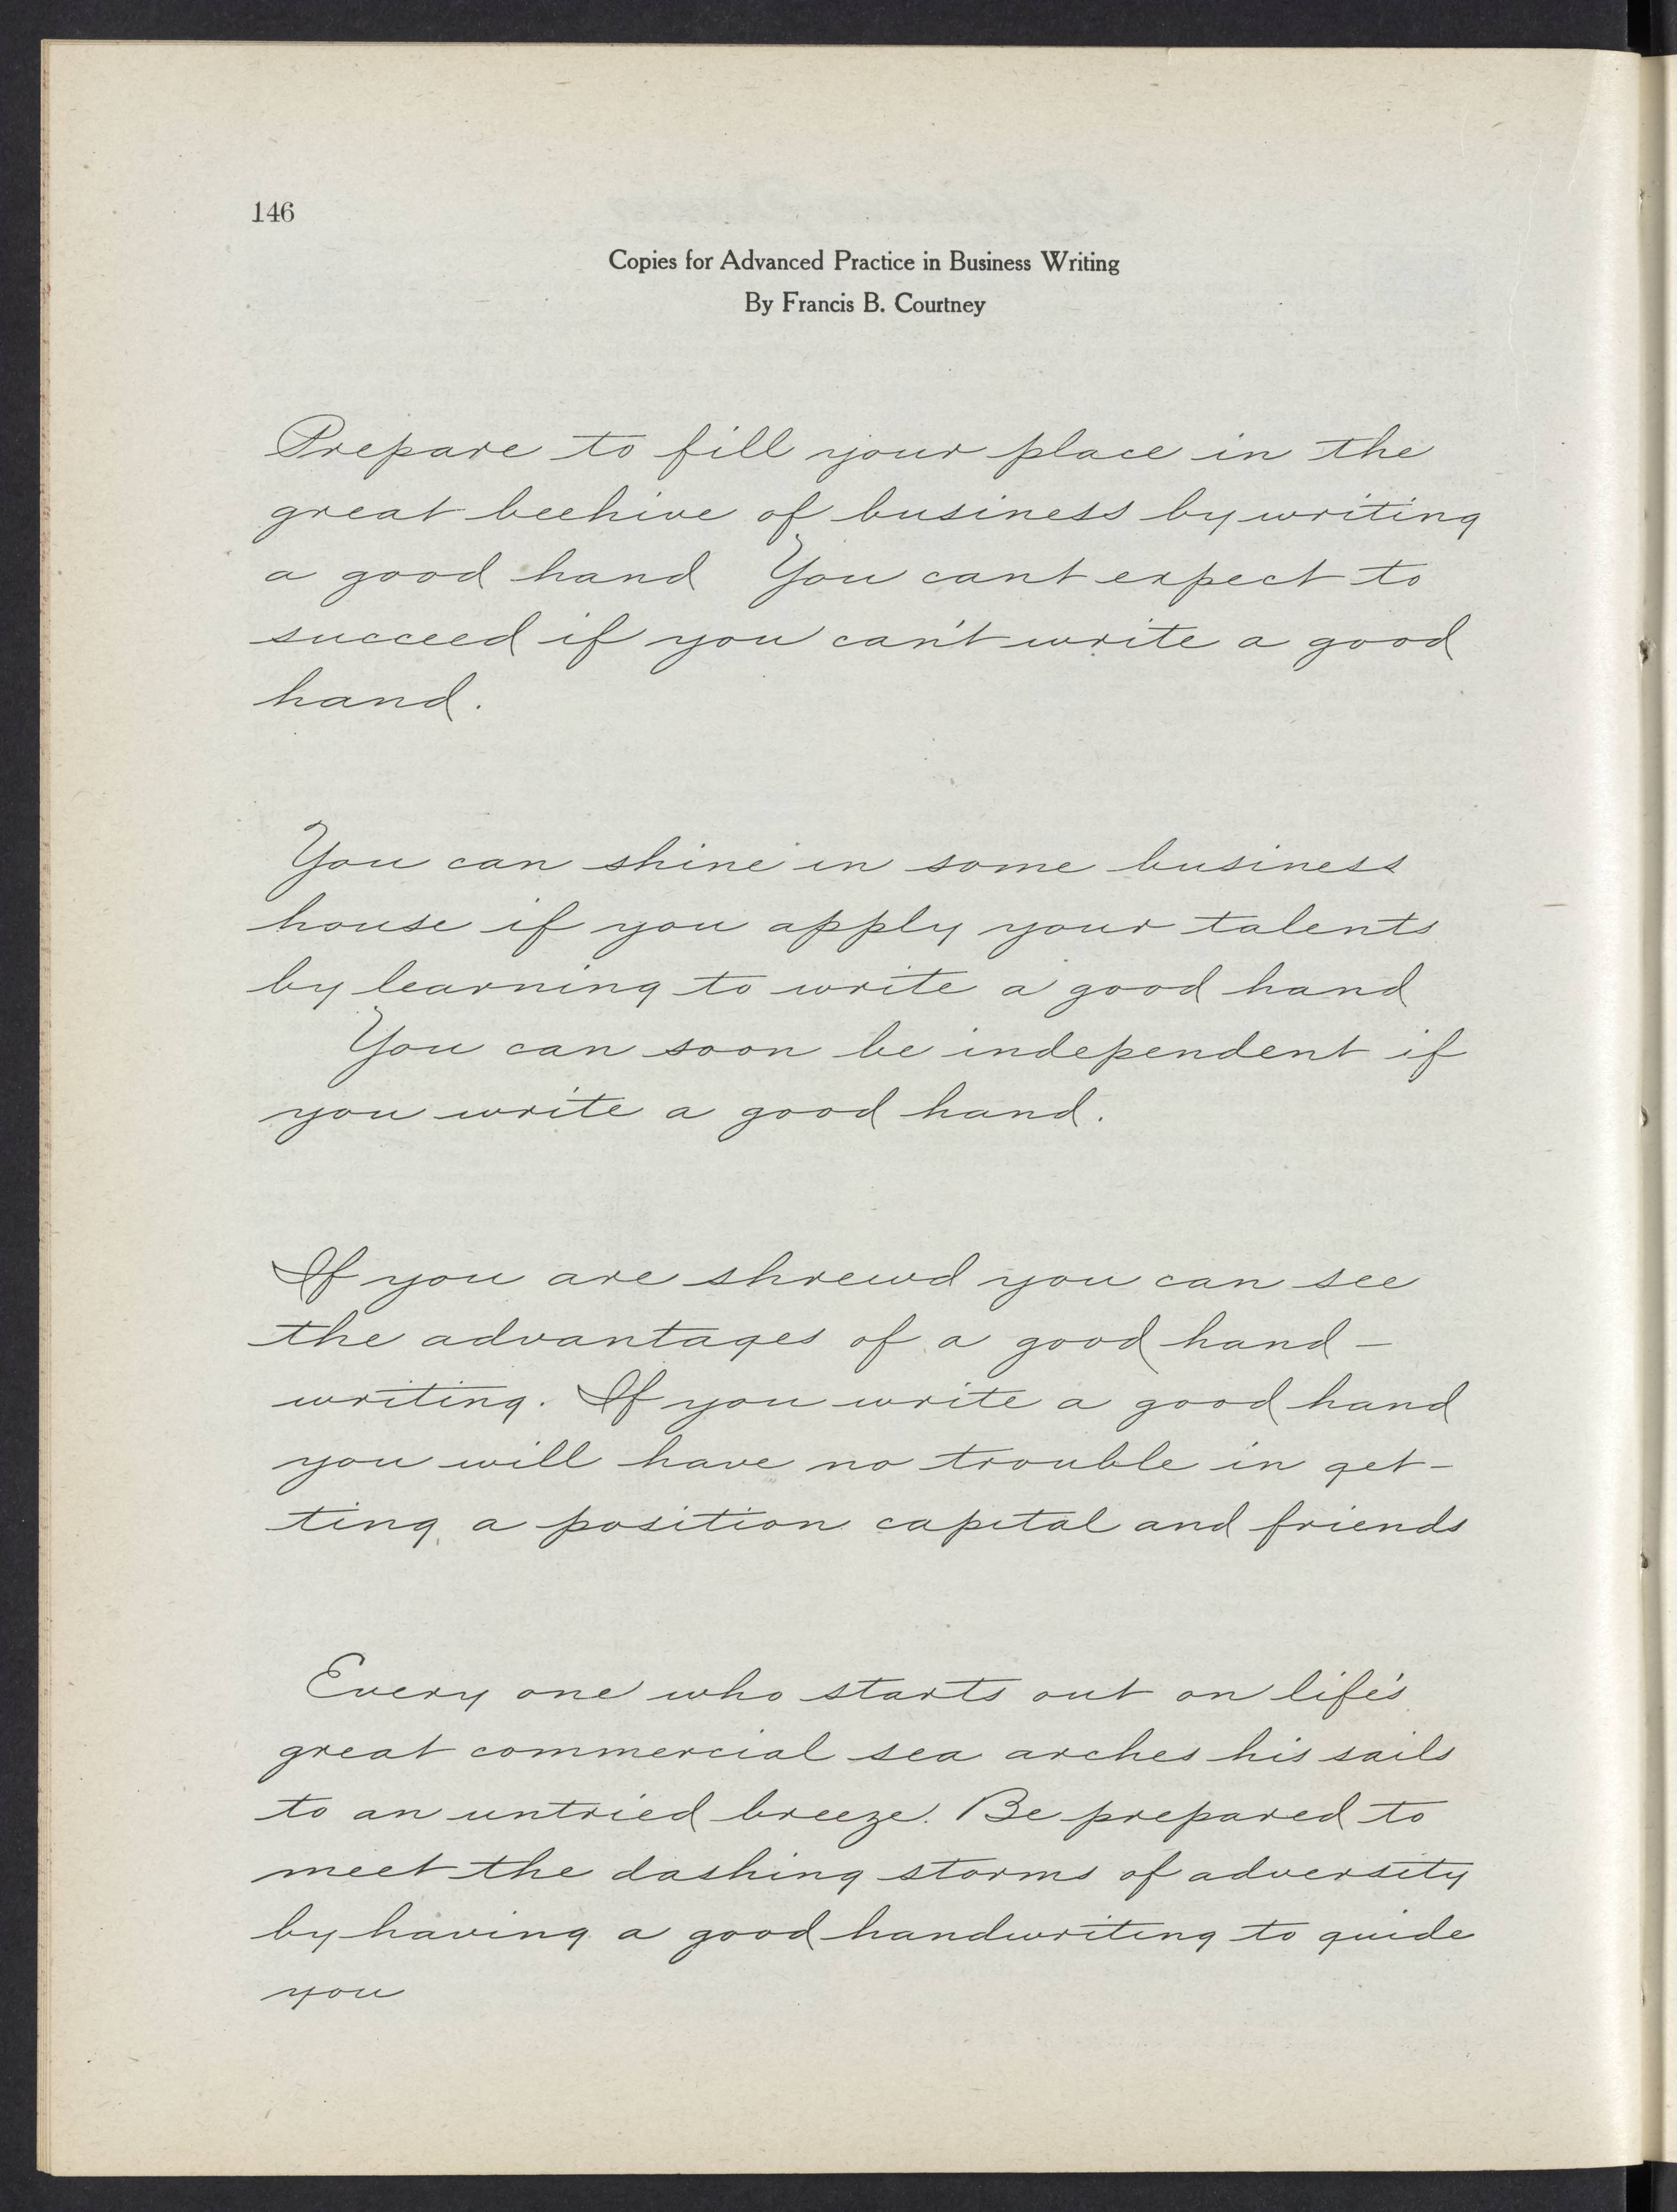 146
Copies for Advanced Practice in Business Writing
By Francis B. Courtney
Prepare to fill your place in the
great beehive of business by writing
a good hand You cant expect to
succeed if you can't write a good
hand.
You can shine in some business
house if you apply your talents
by learning to write a good hand
You can soon be independent if
you write a good hand.
If you are shrewd you can see
the advantages of a good hand-
writing. If you write a good hand
you will have no trouble in get-
ting a position capital and friends
Every one who starts out on life's
great commercial sea arches his sails
to an untried breeze. Be prepared to
meet the dashing storms of adversity
by having a good handwriting to guide
you